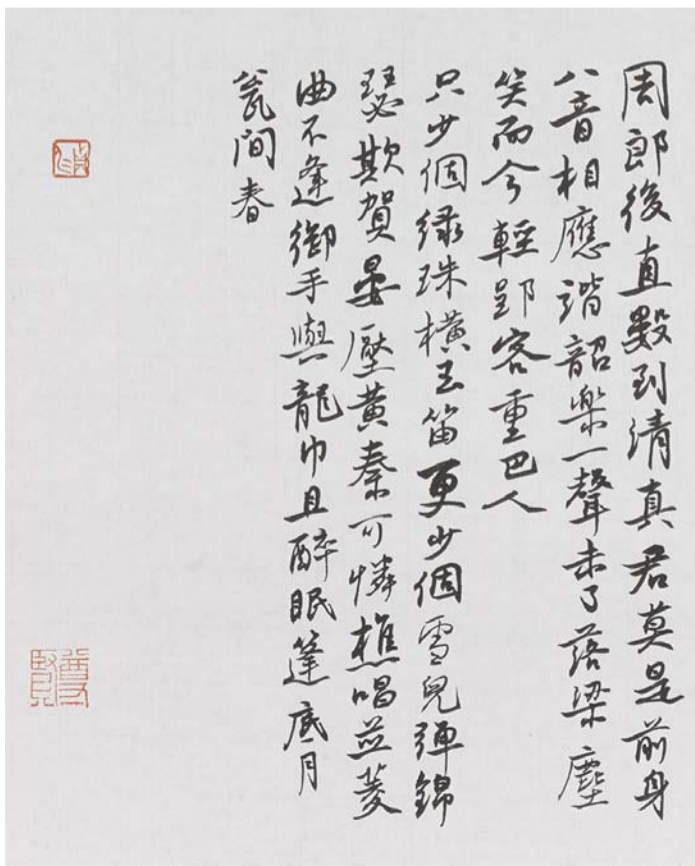 周郎後直數到清真君莫是前身
八音相應諧韶樂一聲未了落梁塵
笑而今輕郢客重巴人
只少個緑珠橫玉笛更少個雪兒彈錦
瑟欺賀晏壓黃秦可憐樵唱並菱
曲不逢御手與龍巾且醉眠篷底月
瓮間春